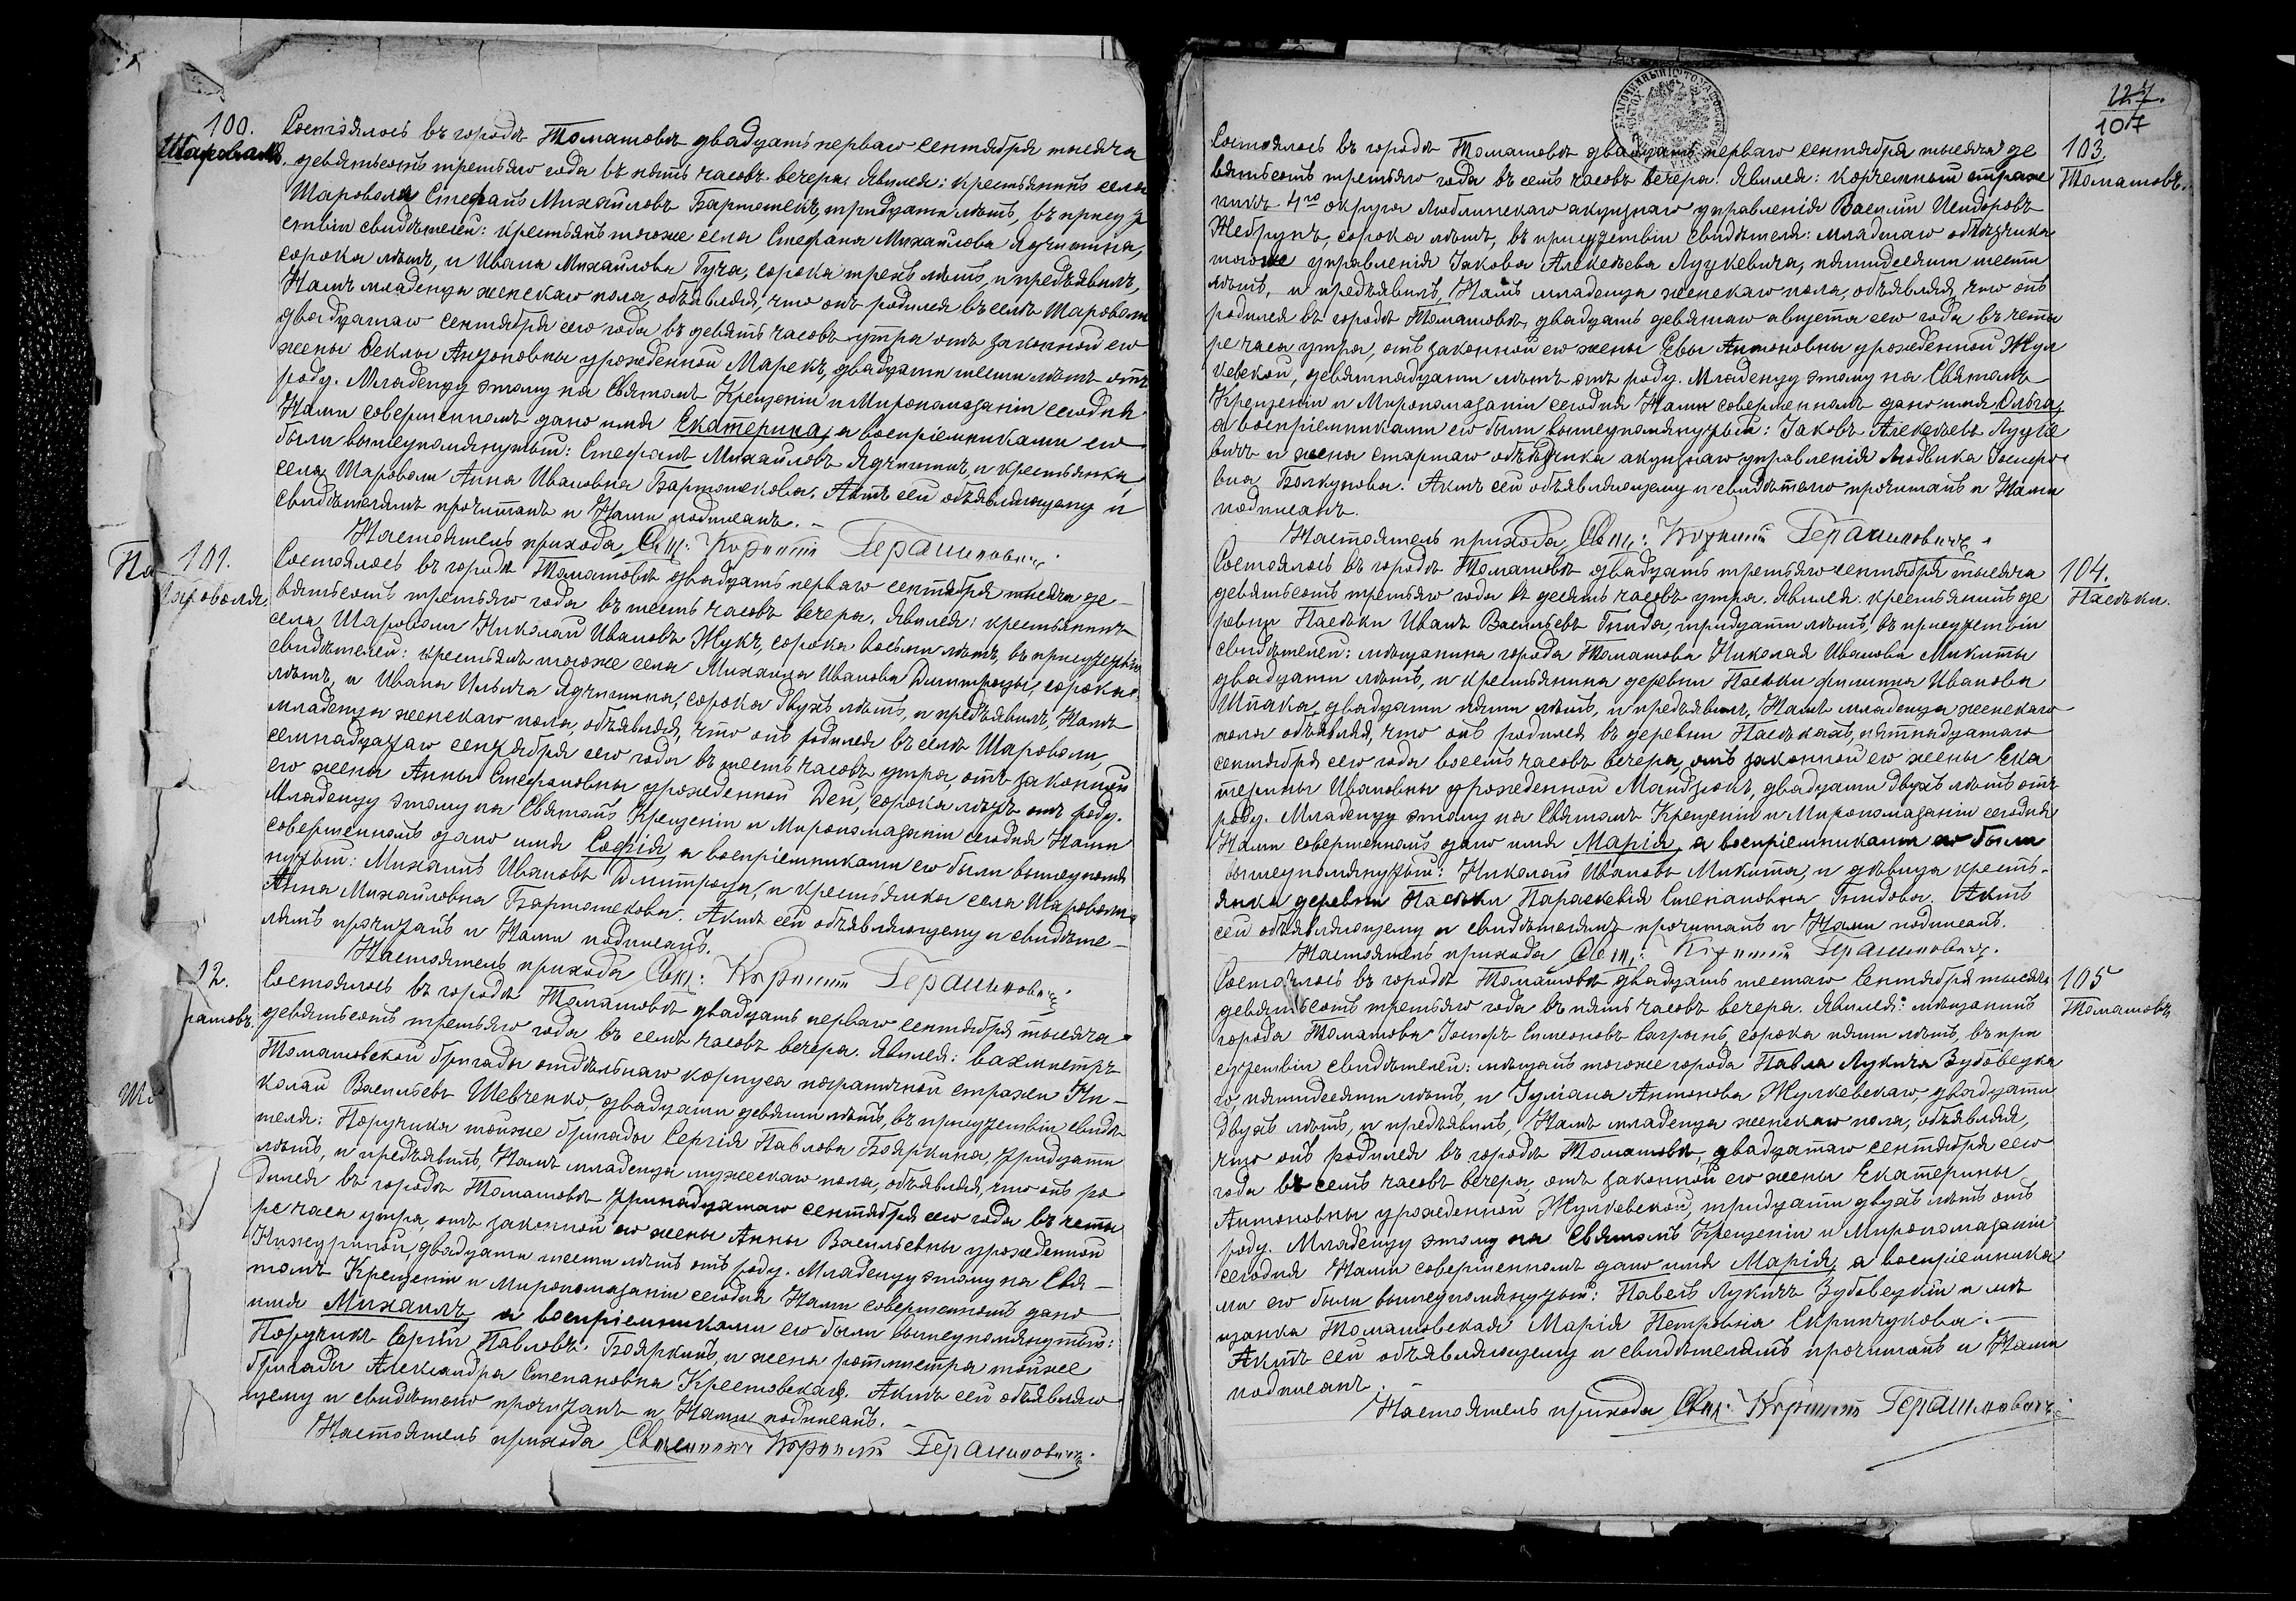 100.
Шароволя.
Состоялось въ городѣ Томашовѣ двадцать перваго сентября тысяча
девятьсотъ третьяго года въ пять часовъ вечера. Явился: крестьянинъ села
Шароволя Стефанъ Михайловъ Бартошекъ, тридцати лѣтъ, въ присут
ствіи свидѣтелей: крестьянъ тогоже села Стефана Михайлова Ядчишина,
сорока лѣтъ, и Ивана Михайлова Гуча, сорока трехъ лѣтъ, и предъявилъ,
Намъ младенца женскаго пола, объявляя, что онъ родился въ селѣ Шароволи
двадцатаго сентября сего года въ девять часовъ утра отъ законной его
жены Феклы Антоновны урожденной Марекъ, двадцати шести лѣтъ отъ
роду. Младенцу этому на Святомъ Крещеніи и Миропомазаніи сегодня
Нами совершенномъ дано имя Екатерина, а воспріемниками его
были вышеупомянутый: Стефанъ Михайловъ Ядчишинъ, и крестьянка
села Шароволи Анна Ивановна Бартошекова. Актъ сей объявляющему и
свидѣтелямъ прочитанъ и Нами подписанъ. -
Настоятель прихода Свщ: Герасимовичъ
На
101.
Шароволя.
Состоялось въ городѣ Томашовѣ двадцать перваго сентября тысяча де-
вятьсотъ третьяго года въ шесть часовъ вечера. Явился: крестьянинъ
села Шароволи Николай Ивановъ Жукъ, сорока восьми лѣтъ, въ присутствіи
свидѣтелей: крестьянъ тогоже села Михаила Иванова Дмитроцы, сорока
лѣтъ, и Ивана Ильича Ядчишина, сорока двухъ лѣтъ, и предъявилъ, Намъ
младенца женскаго пола, объявляя, что онъ родился въ селѣ Шароволи,
семнадцатаго сентября сего года въ шесть часовъ утра, отъ законной
его жены Анны Стефановны урожденной Дей, сорока лѣтъ отъ роду.
Младенцу этому на Святомъ Крещеніи и Миропомазаніи сегодня Нами
совершенномъ дано имя Софія, а воспріемниками его были вышеупомя
нутый: Михаилъ Ивановъ Дмитроца, и крестьянка села Шароволи
Анна Михайловна Бартошекова. Актъ сей объявляющему и свидѣте-
лямъ прочитанъ и Нами подписанъ.
Настоятель прихода Свщ: Герасимовичъ
12.
машовъ.
Состоялось въ городѣ Томашовѣ двадцать перваго сентября тысяча
девятьсотъ третьяго года въ семь часовъ вечера. Явился: вахмистръ
Томашовской бригады отдѣльнаго корпуса пограничной стражи Ни-
колай Васильевъ Шевченко, двадцати девяти лѣтъ, въ присутствіи свидѣ
теля: Поручика тойже бригады Сергія Павлова Бояркина, тридцати
лѣтъ, и предъявилъ, Намъ младенца мужескаго пола, объявляя, что онъ ро
дился въ городѣ Томашовѣ тринадцатаго сентября сего года въ четы
ре часа утра, отъ законной его жены Анны Васильевны урожденной
двадцати шести лѣтъ отъ роду. Младенцу этому на Свя-
томъ Крещеніи и Миропомазаніи сегодня Нами совершенномъ дано
имя Михаилъ, а воспріемниками его были вышеупомянутый:
Поручикъ Сергій Павловъ Бояркинъ, и жена ротмистра тойже
бригады Александра Степановна Крестовская. Актъ сей объявляю-
щему и свидѣтелю прочитанъ и Нами подписанъ. -
Настоятель прихода Священникъ Герасимовичъ.
127.
107
103.
Томашовъ.
Состоялось въ городѣ Томашовѣ двадцать перваго сентября тысяча де
вятьсотъ третьяго года въ семь часовъ вечера. Явился: корчемный страж
никъ 4го округа Люблинскаго акцизнаго управленія Василій Исидоровъ
Жебрунъ, сорока лѣтъ, въ присутствіи свидѣтеля: младшаго объѣздчика
тогоже управленія Іакова Алексѣева Луцкевича, пятидесяти шести
лѣтъ, и предъявилъ, Намъ младенца женскаго пола, объявляя, что онъ
родился въ городѣ Томашовѣ, двадцать девятаго августа сего года въ четы
ре часа утра, отъ законной его жены Евы Антоновны урожденной Жул
кевской, девятнадцати лѣтъ отъ роду. Младенцу этому на Святомъ
Крещеніи и Миропомазаніи сегодня Нами совершенномъ дано имя Ольга,
а воспріемниками его были вышеупомянутый: Іаковъ Алексѣевъ Луцке
вичъ и жена старшаго объѣздчика акцизнаго управленія Людвика
Болкунова. Актъ сей объявляющему и свидѣтелю прочитанъ и Нами
подписанъ.
Настоятель прихода Свщ: Герасимовичъ.
104.
Пасѣки.
Состоялось въ городѣ Томашовѣ двадцать третьяго сентября тысяча
девятьсотъ третьяго года въ десять часовъ утра. Явился: крестьянинъ де
ревни Пасѣки Иванъ Васильевъ Гнида, тридцати лѣтъ, въ присутствіи
свидѣтелей: мѣщанина города Томашова Николая Иванова Микиты
двадцати лѣтъ, и крестьянина деревни Пасѣки Филиппа Иванова
Шпака, двадцати пяти лѣтъ, и предъявилъ, Намъ младенца женскаго
пола объявляя, что онъ родился въ деревни Пасѣкахъ, пятнадцатаго
сентября сего года восемь часовъ вечера, отъ законной его жены Ека
терины Ивановны урожденной Мандзюкъ, двадцати двухъ лѣтъ отъ
роду. Младенцу этому на Святомъ Крещеніи и Миропомазаніи сегодня
Нами совершенномъ дано имя Марія, а воспріемниками его были
вышеупомянутый: Николай Ивановъ Микита, и дѣвица кресть-
янка деревни Пасѣки Параскевія Степановна Гнидова. Актъ
сей объявляющему и свидѣтелямъ прочитанъ и Нами подписанъ.
Настоятель прихода Свщ: Герасимовичъ.
105
Томашовъ
Состоялось въ городѣ Томашовѣ двадцать шестаго Сентября тысяча
девятьсотъ третьяго года въ пять часовъ вечера. Явился: мѣщанинъ
города Томашова Іосифъ Симеоновъ Сагрынь, сорока пяти лѣтъ, въ при
сутствіи свидѣтелей: мѣщанъ тогоже города Павла Лукича Зубовецка
го пятидесяти лѣтъ, и Іуліана Антонова Жулкевскаго, двадцати
двухъ лѣтъ, и предъявилъ, Намъ младенца женскаго пола, объявляя,
что онъ родился въ городѣ Томашовѣ, двадцатаго сентября сего
года въ семь часовъ вечера, отъ законной его жены Екатерины
Антоновны урожденной Жулкевской, тридцати двухъ лѣтъ отъ
роду. Младенцу этому на Святомъ Крещеніи и Миропомазаніи
сегодня Нами совершенномъ дано имя Марія, а воспріемника
ми его были вышеупомянутый: Павелъ Лукичъ Зубовецкій и мѣ
щанка Томашовская Марія Петровна Скрипчукова. -
Актъ сей объявляющему и свидѣтелямъ прочитанъ и Нами
подписанъ. -
Настоятель прихода Свщ: Герасимовичъ